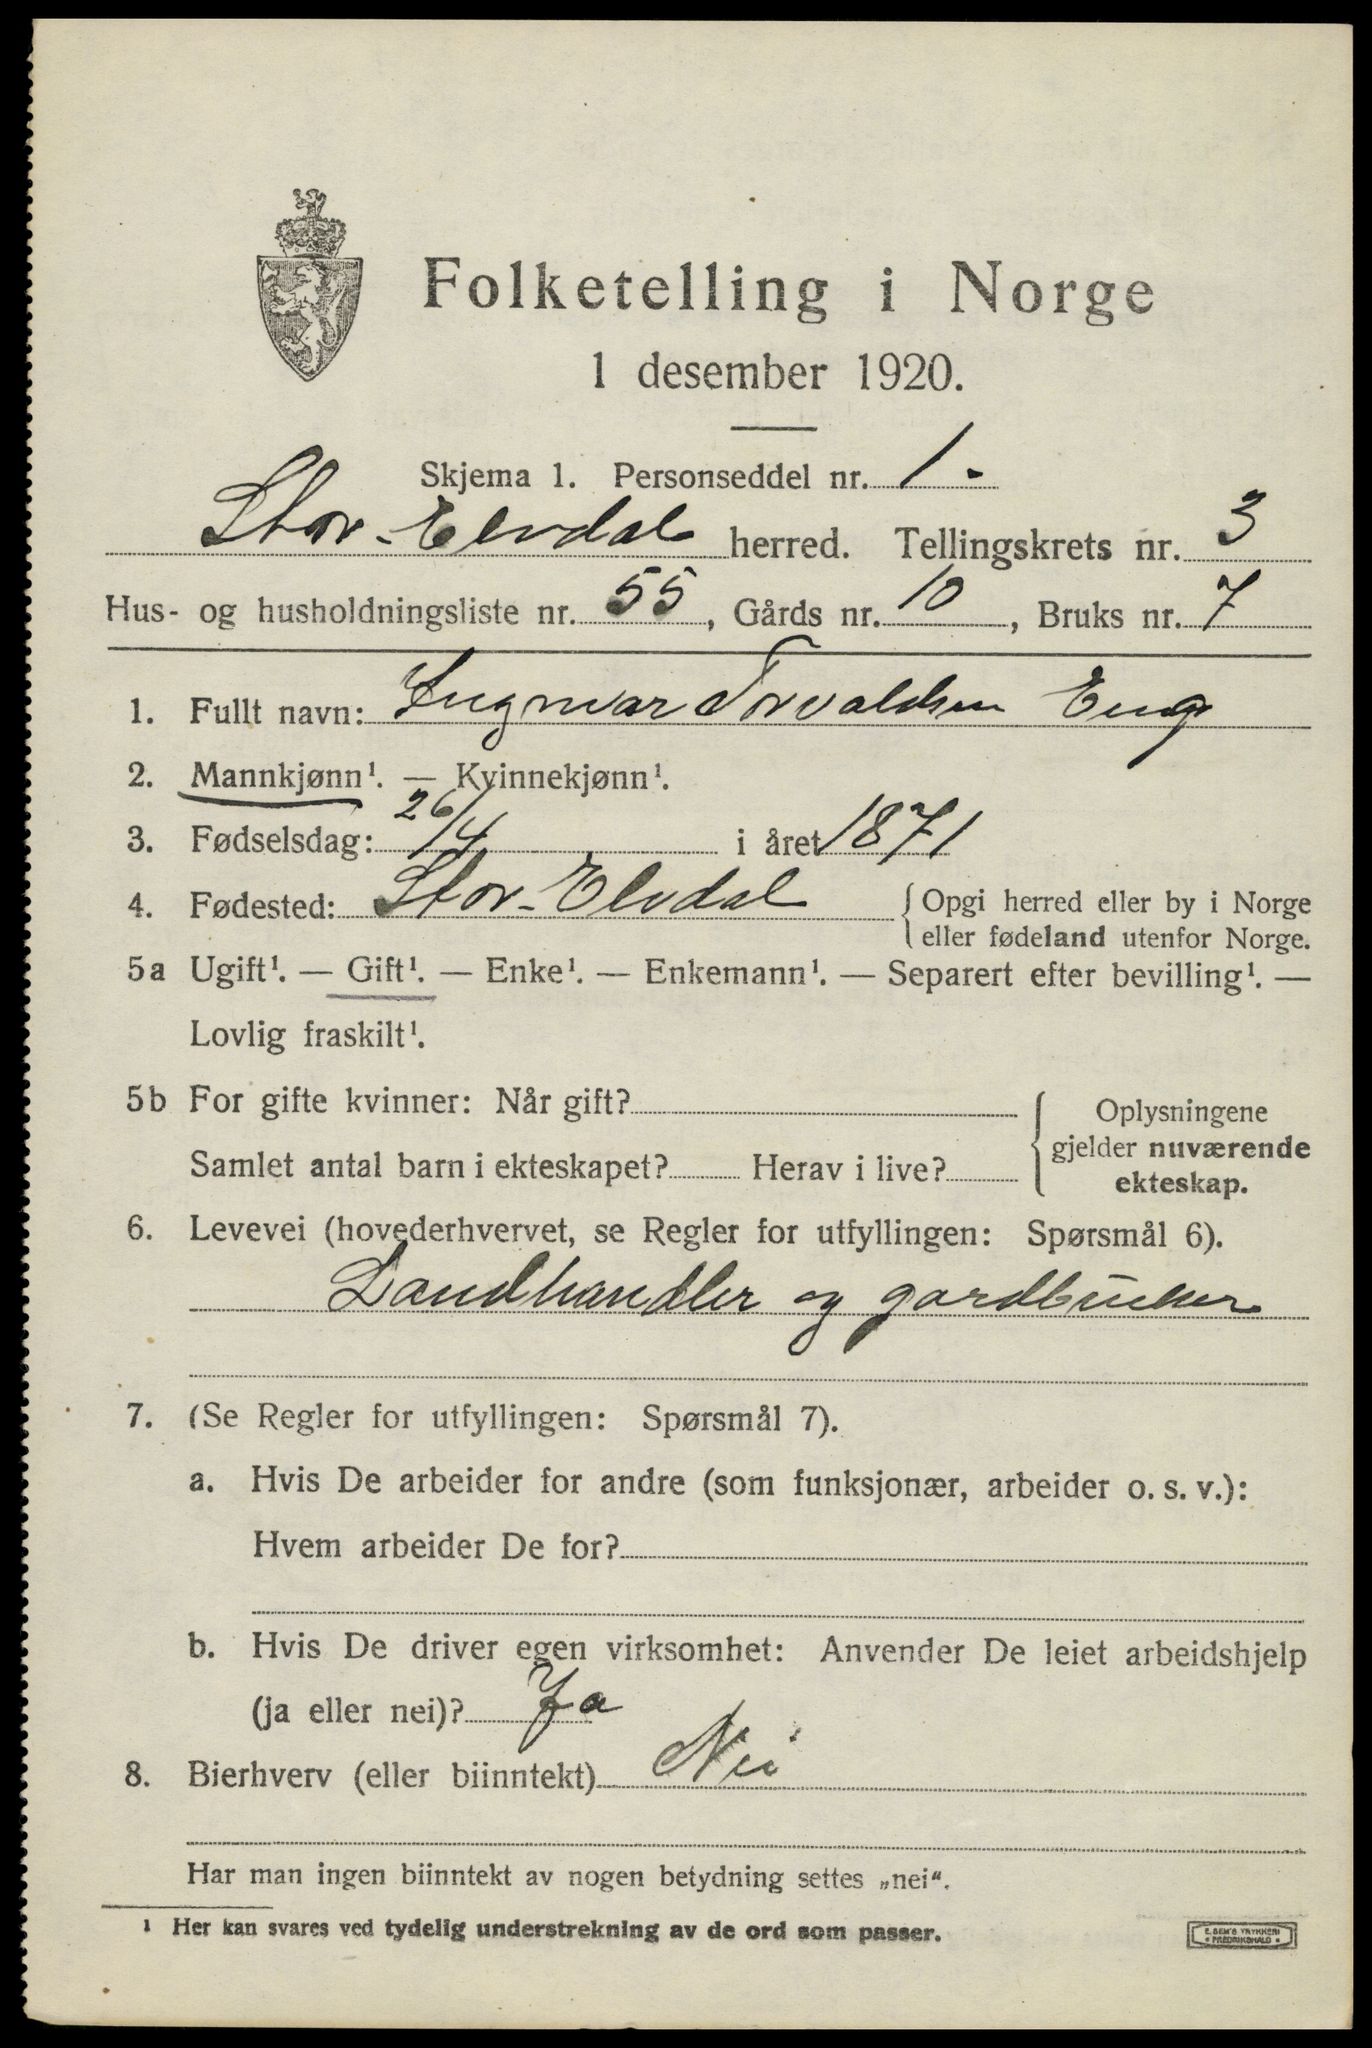 Folketelling i Norge
1 desember 1920.
Skjema 1. Personseddel nr. 1.
Stor-Elvdal herred. Tellingskrets nr. 3
Hus- og husholdningsliste nr. 55, Gårds nr. 10, Bruks nr. 7
1. Fullt navn: Ingmar Torvaldsen Eng
2. Mannkjønn¹. — Kvinnekjønn¹.
3. Fødselsdag: 26/4 i året 1871
4. Fødested: Stor-Elvdal { Opgi herred eller by i Norge
eller fødeland utenfor Norge.
5a Ugift¹. — Gift¹. — Enke¹. — Enkemann¹. — Separert efter bevilling¹. —
Lovlig fraskilt¹.
5b For gifte kvinner: Når gift?
Samlet antal barn i ekteskapet? Herav i live?
Oplysningene
gjelder nuværende
ekteskap.
6. Levevei (hovederhvervet, se Regler for utfyllingen: Spørsmål 6).
Landhandler og gardbruker
7. (Se Regler for utfyllingen: Spørsmål 7).
a. Hvis De arbeider for andre (som funksjonær, arbeider o. s. v.):
Hvem arbeider De for?
b. Hvis De driver egen virksomhet: Anvender De leiet arbeidshjelp
(ja eller nei)? Ja
8. Bierhverv (eller biinntekt) Nei
Har man ingen biinntekt av nogen betydning settes „nei“.
¹ Her kan svares ved tydelig understrekning av de ord som passer.
E. SEM'S TRYKKERI
• FREDRIKSHALD •